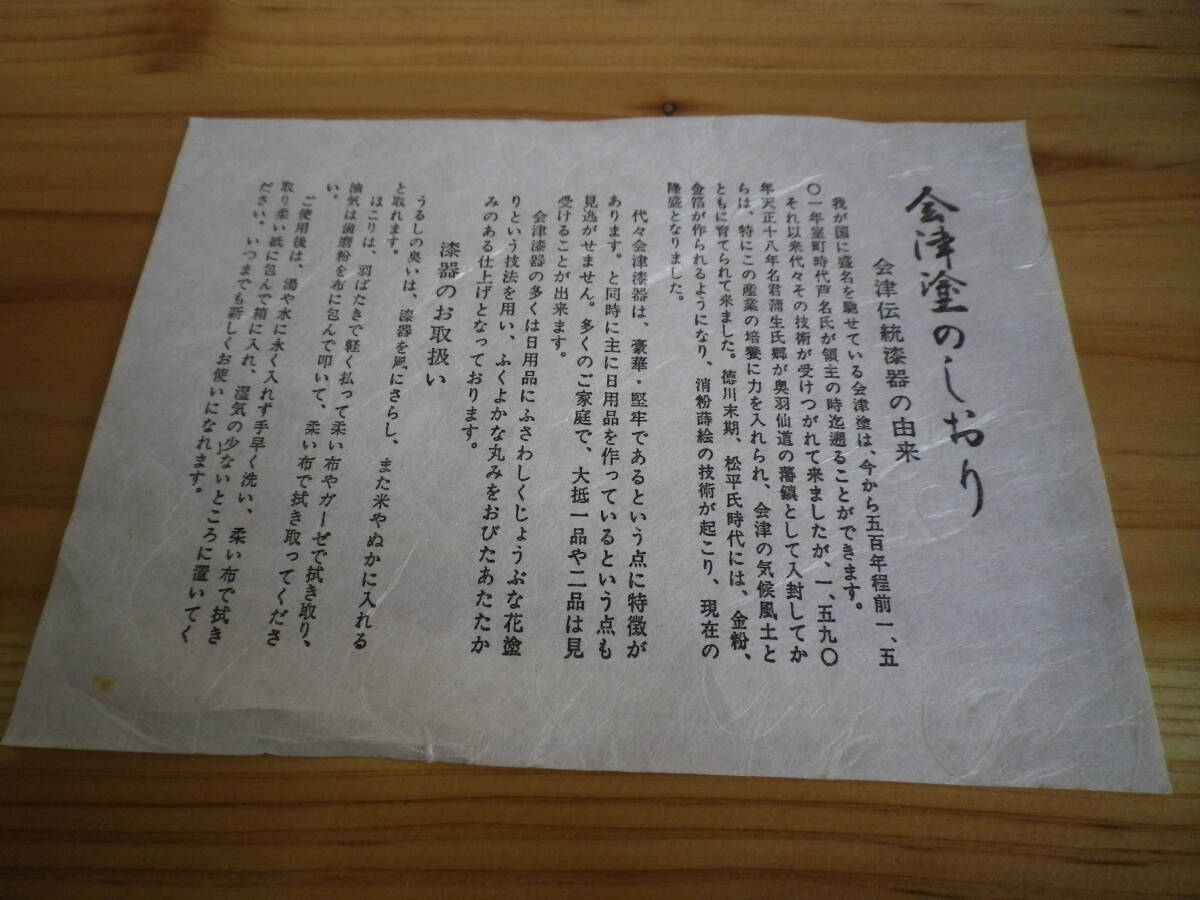 会津塗のしおり
会津伝統漆器の由来
我が国に盛名を馳せている会津塗は、今から五百年程前一、五
〇一年室町時代芦名氏が領主の時迄遡ることができます。
それ以来代々その技術が受けつがれて来ましたが、一、五九〇
年天正十八年名君蒲生氏郷が奥羽仙道の藩鎮として入封してか
らは、特にこの産業の培養に力を入れられ、会津の気候風土と
ともに育てられて来ました。徳川末期、松平氏時代には、金粉、
金箔が作られるようになり、消粉蒔絵の技術が起こり、現在の
隆盛となりました。
代々会津漆器は、豪華・堅牢であるという点に特徴が
あります。と同時に主に日用品を作っているという点も
見逃がせません。多くのご家庭で、大抵一品や二品は見
受けることが出来ます。
会津漆器の多くは日用品にふさわしくじょうぶな花塗
りという技法を用い、ふくよかな丸みをおびたあたたか
みのある仕上げとなっております。
漆器のお取扱い
うるしの臭いは、漆器を風にさらし、また米やぬかに入れる
と取れます。
ほこりは、羽ばたきで軽く払って柔い布やガーゼで拭き取り、
油気は歯磨粉を布に包んで叩いて、柔い布で拭き取ってくださ
い。
ご使用後は、湯や水に永く入れず手早く洗い、柔い布で拭き
取り柔い紙に包んで箱に入れ、湿気の少ないところに置いてく
ださい。いつまでも新しくお使いになれます。